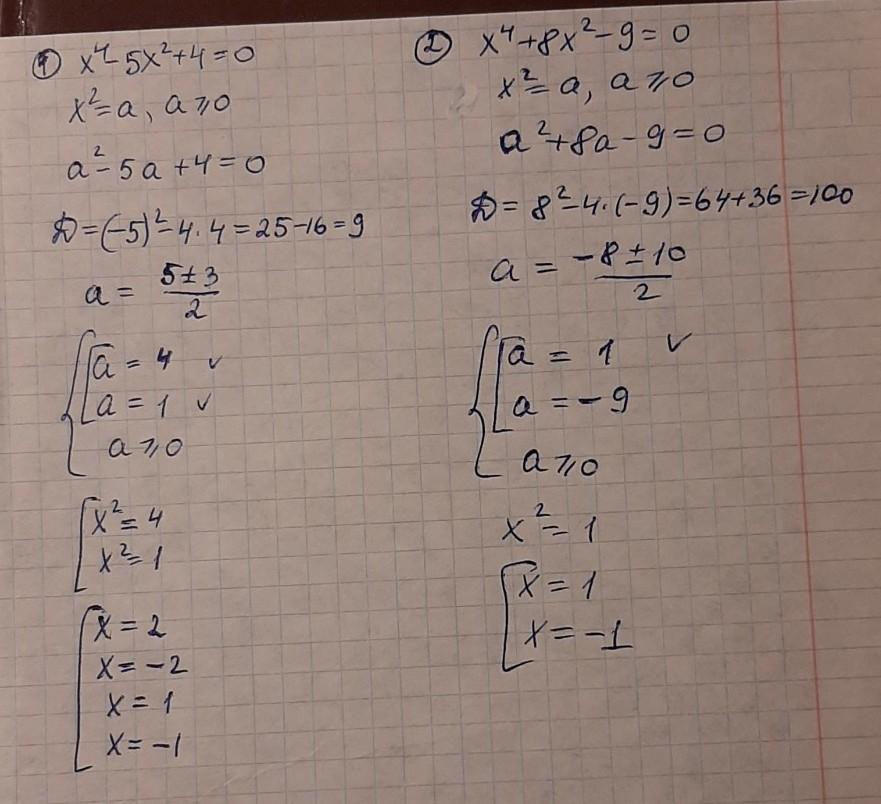 ① x⁴-5x²+4=0
x²=a, a⩾0
a²-5a+4=0
D=(-5)²-4·4=25-16=9
a = (5±3)/2
{[a = 4 ✓
[a = 1 ✓
a⩾0
[x²=4
x²=1
[x=2
x=-2
x=1
x=-1
② x⁴+8x²-9=0
x²=a, a⩾0
a²+8a-9=0
D=8²-4·(-9)=64+36=100
a = (-8±10)/2
{[a = 1 ✓
[a = -9
a⩾0
x²=1
[x=1
x=-1